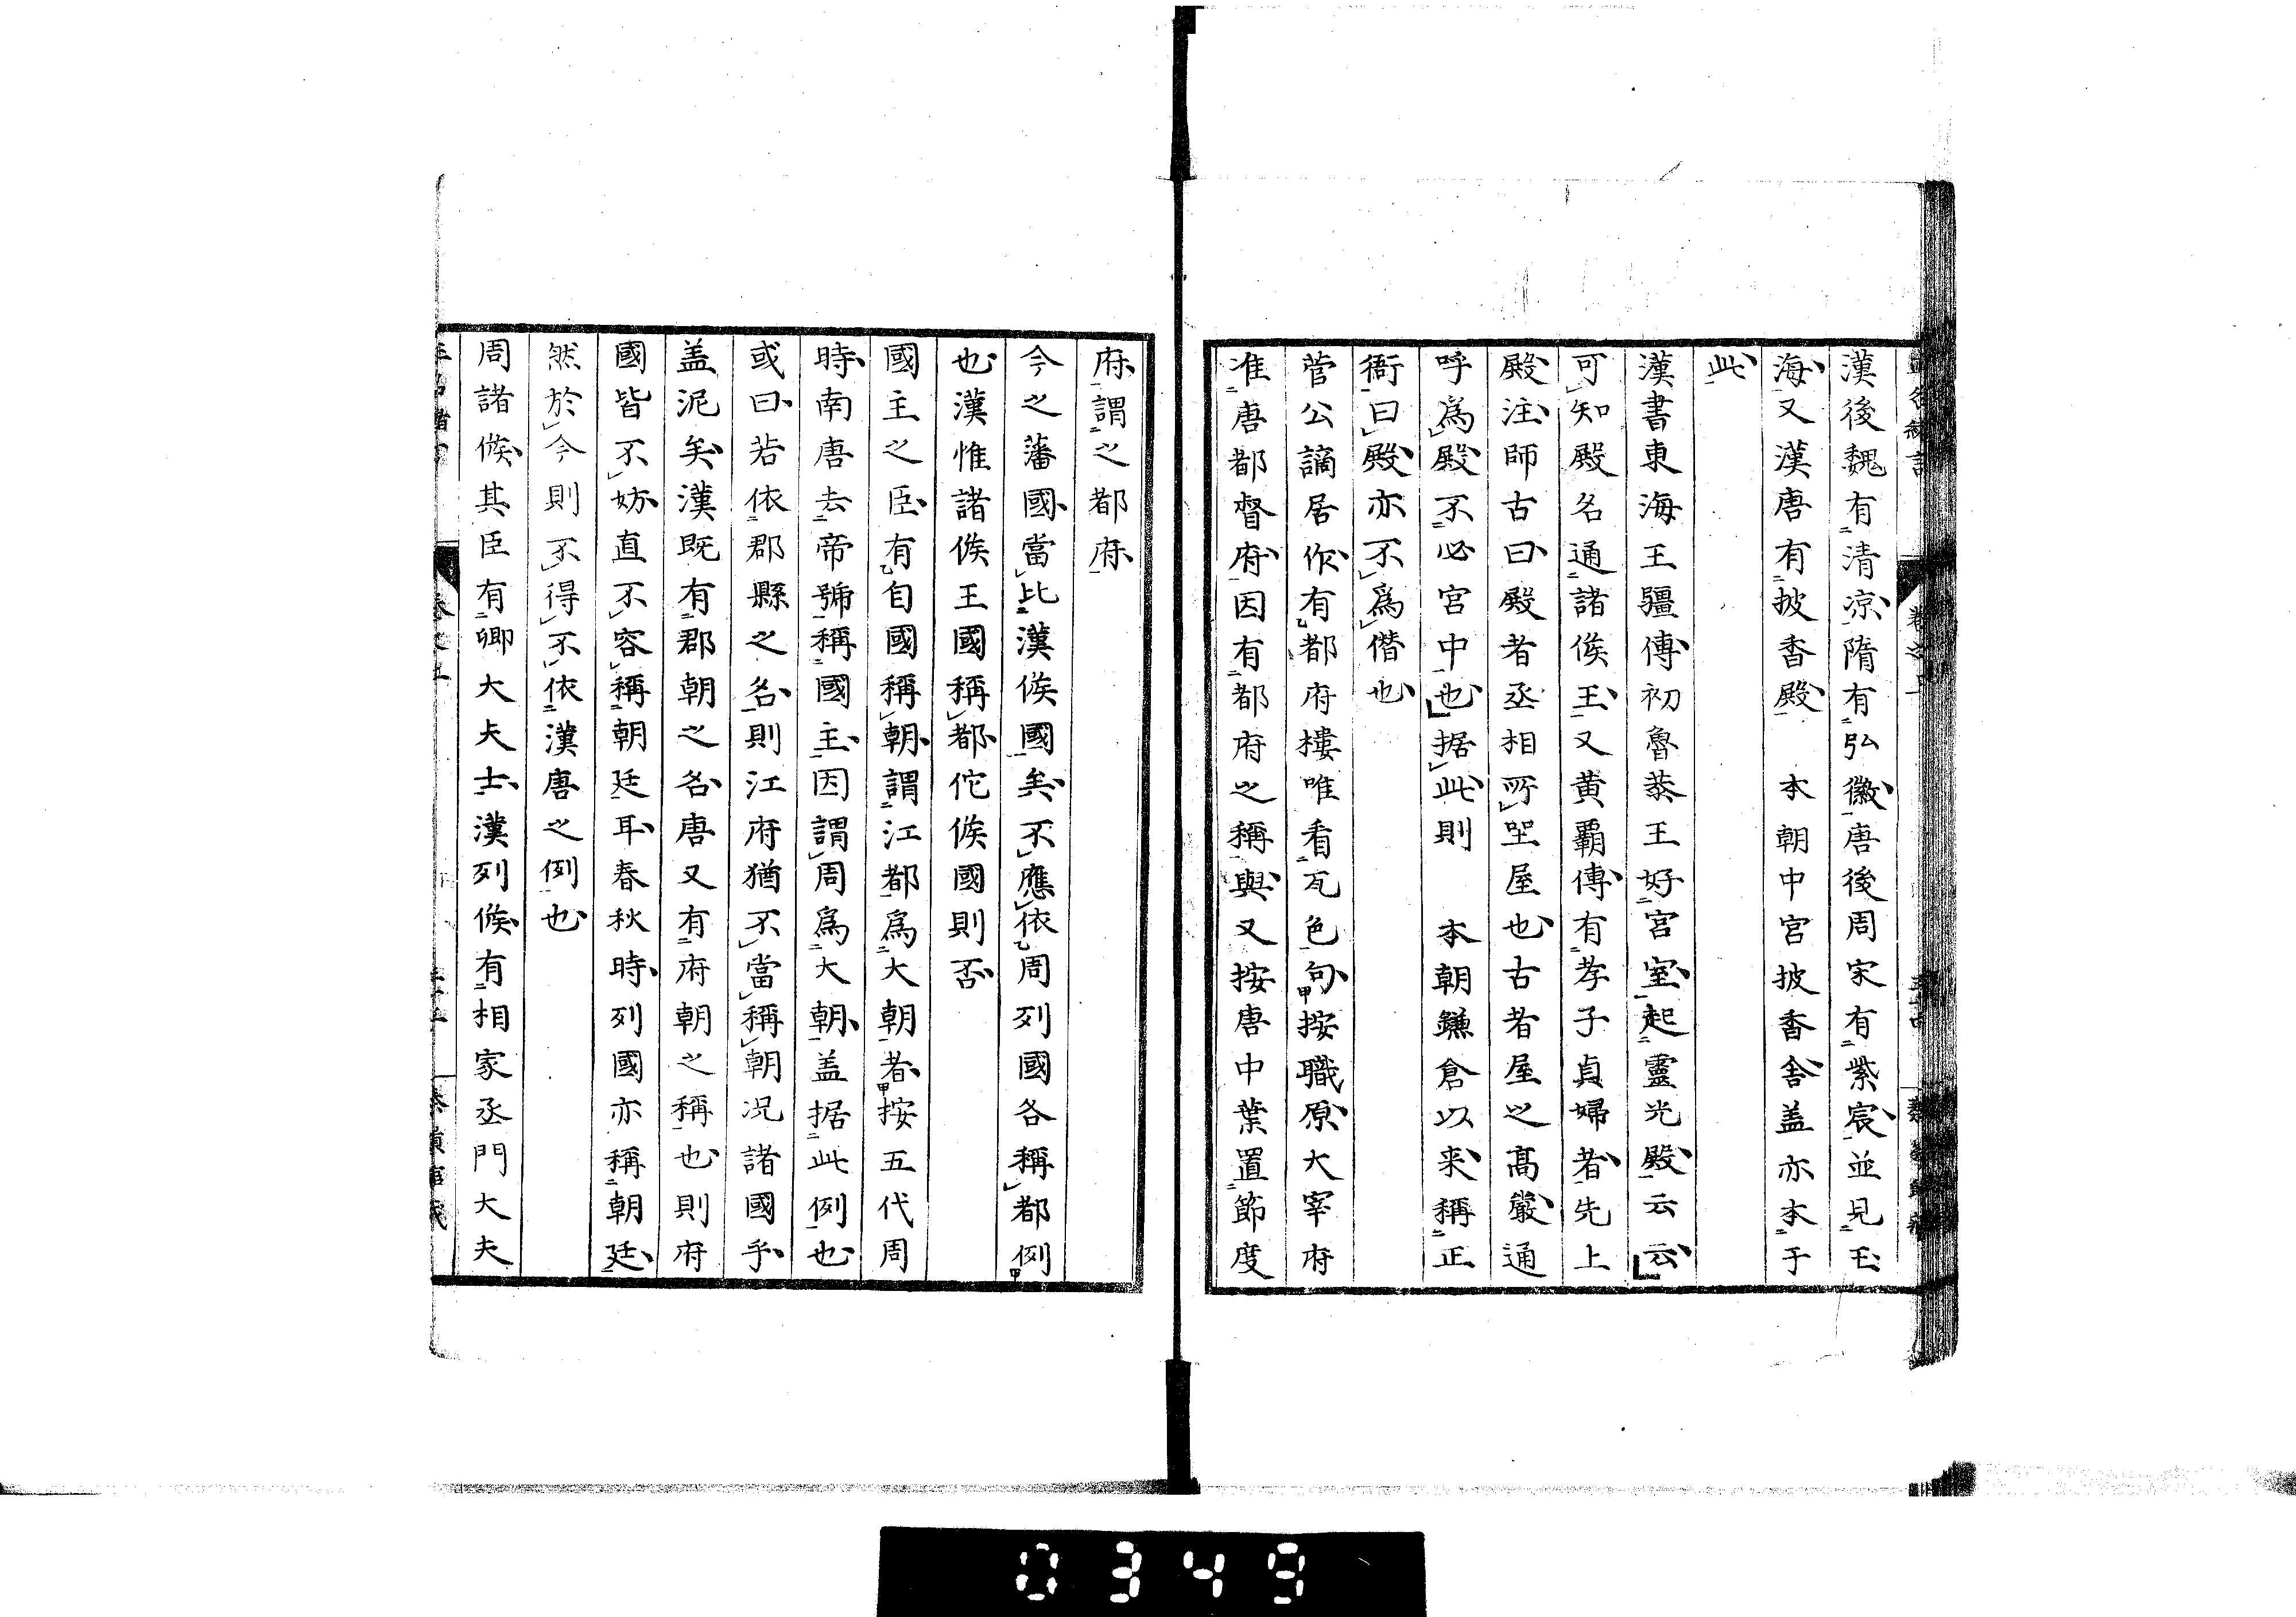 漢後魏有清凉隋有弘徽唐後周宋有紫宸並見玉
海又漢唐有披香殿　本朝中宮披香舍盖亦本于
此
漢書東海王彊傳初魯恭王好宮室起靈光殿云云
可知殿名通諸侯王又黄覇傳有孝子貞婦者先上
殿注師古曰殿者丞相所坐屋也古者屋之髙嚴通
呼爲殿不必宮中也据此則　本朝鎌倉以来稱正
衙曰殿亦不爲僭也
菅公謫居作有都府樓唯看瓦色句按職原大宰府
准唐都督府因有都府之稱與又按唐中葉置節度
府謂之都府
今之藩國當比漢侯國矣不應依周列國各稱都例
也漢惟諸侯王國稱都佗侯國則否
國主之臣有自國稱朝謂江都爲大朝者按五代周
時南唐去帝號稱國主因謂周爲大朝盖据此例也
或曰若依郡縣之名則江府猶不當稱朝况諸國乎
盖泥矣漢既有郡朝之名唐又有府朝之稱也則府
國皆不妨直不容稱朝廷耳春秋時列國亦稱朝廷
然於今則不得不依漢唐之例也
周諸侯其臣有卿大夫士漢列侯有相家丞門大夫
0349